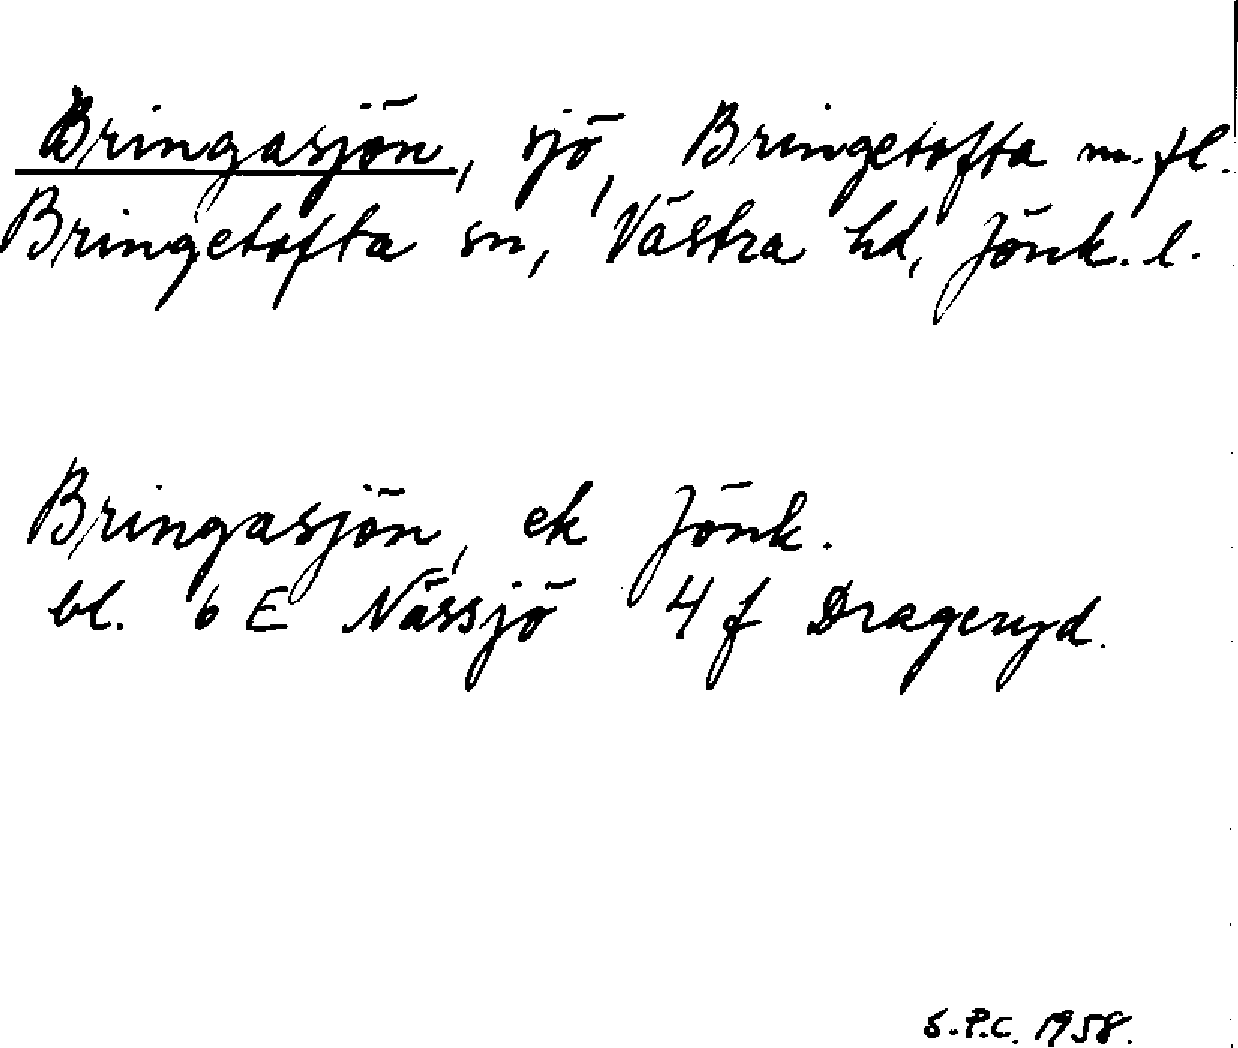 Bringasjön, sjö, Bringetofta m. fl.
Bringetofta sn, Västra hd, Jönk. l.
Bringasjön, ek Jönk.
bl. 6 E Nässjö 4 f Drageryd.
S.P.C. 1958.